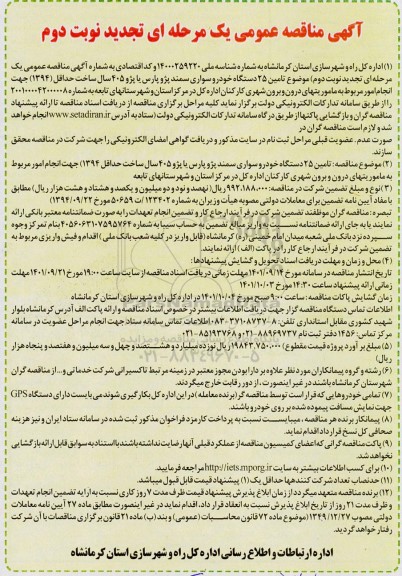 آگهی مناقصه عمومی یک مرحله ای تجدید نوبت دوم
۱) اداره کل راه و شهرسازی استان کرمانشاه به شماره شناسه ملی ۱۴۰۰۰۲۵۹۲۲۰ و کد اقتصادی به شماره آگهی مناقصه عمومی یک
مرحله ای تجدید نوبت دوم) موضوع تامین ۲۵ دستگاه خودرو سواری سمند پژو پارس یا پژو ۴۰۵ سال ساخت حداقل (۱۳۹۴) جهت
انجام امور مربوط به ماموریتهای درون و برون شهری کارکنان اداره کل در مرکز استان و شهرستانهای تابعه به شماره ۲۰۰۱۰۰۰۰۴۲۰۰۰۰۰۸
را از طریق سامانه تدارکات الکترونیکی دولت برگزار نماید کلیه مراحل برگزاری مناقصه از دریافت اسناد مناقصه تا ارائه پیشنهاد
مناقصه گران و بازگشایی پاکتها از طریق درگاه سامانه تدارکات الکترونیکی دولت (ستاد به آدرس www.setadiran.ir انجام خواهد
شد و لازم است مناقصه گران در
صورت عدم عضویت قبلی مراحل ثبت نام در سایت مذکور و دریافت گواهی امضای الکترونیکی را جهت شرکت در مناقصه محقق
سازند.
۲) موضوع مناقصه: تامین ۲۵ دستگاه خودرو سواری سمند پژو پارس یا پژو ۴۰۵ سال ساخت حداقل ۱۳۹۴) جهت انجام امور مربوط
به ماموریتهای درون و برون شهری کارکنان اداره کل در مرکز استان و شهرستانهای تابعه
۳) نوع و مبلغ تضمین شرکت در مناقصه: ۹۹۲.۱۸۸.۰۰۰ ریال( نهصد و نود و دو میلیون و یکصد و هشتاد و هشت هزار ریال) مطابق
با مفاد آیین نامه تضمین برای معاملات دولتی مصوبه هیأت وزیران به شماره ۱۲۳۴۰۲ /ت ۵۰۶۵۹ مورخ ۱۳۹۴/۰۹/۲۲)
تبصره: مناقصه گران موظفند تضمین شرکت در فرآیند ارجاع کار و تضمین انجام تعهدات را به صورت ضمانتنامه معتبر بانکی ارائه
نمایند یا به جای ارائه ضمانتنامه نسبت به واریز مبالغ تضمین به حساب سیبا به شماره ۴۰۵۶۰۶۳۱۰۷۵۹۵۷۶۴ بنام تمرکز وجوه
سپرده نزد بانک ملی شعبه میدان امام خمینی (ره) کرمانشاه (قابل واریز در کلیه شعب بانک ملی) اقدام و فیش واریزی مربوط به
تضمین شرکت در فرآیند ارجاع کار را در پاکت (الف) ارائه نمایند.
۴) محل و زمان و مهلت دریافت اسناد تحویل و گشایش پیشنهادها:
تاریخ انتشار مناقصه در سامانه مورخ ۱۴۰۱/۰۹/۱۴ مهلت زمانی دریافت اسناد مناقصه از سایت ساعت ۱۹:۰۰ مورخ ۱۴۰۱/۰۹/۲۱ مهلت
زمانی ارائه پیشنهاد ساعت ۱۴:۳۰ مورخ ۱۴۰۱/۱۰/۰۳
زمان گشایش پاکات مناقصه: ساعت ۹:۰۰ صبح مورخ ۱۴۰۱/۱۰/۰۴ در اداره کل راه و شهرسازی استان کرمانشاه
اطلاعات تماس دستگاه مناقصه گزار جهت دریافت اطلاعات بیشتر در خصوص اسناد مناقصه و ارائه پاکت الف آدرس کرمانشاه بلوار
شهید کشوری مقابل استانداری تلفن: ۸-۰۸۳۳۷۱۰۸۷۳۷ اطلاعات تماس سامانه ستاد جهت انجام مراحل عضویت در سامانه
مرکز تماس: ۱۴۵۶ دفتر ثبت نام ۸۸۹۶۹۷۳۷-۰۲۱ و ۸۵۱۹۳۷۶۸-۰۲۱
۵) مبلغ بر آورد پروژه قیمت مقطوع) ۱۹۸۴۳.۷۵۰.۰۰۰ ریال نوزده میلیارد و هشتصد و چهل و سه میلیون و هفتصد و پنجاه هزار
ریال)
۶) رشته و گروه پیمانکاران مورد نظر علاوه بر دارا بودن مجوز معتبر در زمینه مرتبط تاکسیرانی شرکت خدماتی و... از مناقصه گران
شهرستان کرمانشاه باشند در غیر اینصورت، از دور رقابت خارج میگردند.
۷) تمامی خودروهایی که قرار است توسط مناقصه گر (برنده معامله) در این اداره کل بکارگیری شوند می بایست دارای دستگاه GPS
جهت نمایش مسافت پیموده شده بر روی خودرو باشند.
۸) پیمانکار برنده هر مناقصه، میبایست نسبت به پرداخت کارمزد فراخوان مذکور ثبت شده در سامانه ستاد ایران و نیز هزینه
صحافی کل نسخ قرارداد اقدام نماید.
۹) پاکت مناقصه گرانی که اعضای کمیسیون مناقصه از عملکرد قبلی آنها رضایت نداشته باشند با استناد به سوابق قابل ارائه بازگشایی
نخواهد شد.
۱۰) برای کسب اطلاعات بیشتر به سایت http://iets.mporg.ir مراجعه فرمایید.
۱۱) حد نصاب تعداد شرکت کنندهها حداقل یک (۱) پیشنهاد قیمت قابل قبول میباشد.
۱۲) برنده مناقصه متعهد میگردد از زمان ابلاغ پذیرش پیشنهاد قیمت ظرف مدت ۷ روز کاری نسبت به ارایه تضمین انجام تعهدات
و ظرف مدت ۲۱ روز از تاریخ ابلاغ پذیرش نسبت به انعقاد قرارداد، اقدام نماید در غیر اینصورت مطابق ماده ۲۷ آیین نامه معاملات
دولتی مصوب ۱۳۴۹/۱۲/۲۷ (موضوع ماده ۷۲ قانون محاسبات (عمومی) و بند (ب) ماده ۲۱ قانون برگزاری مناقصات با آن شرکت
رفتار خواهد گردید.
اداره ارتباطات و اطلاع رسانی اداره کل راه و شهرسازی استان کرمانشاه